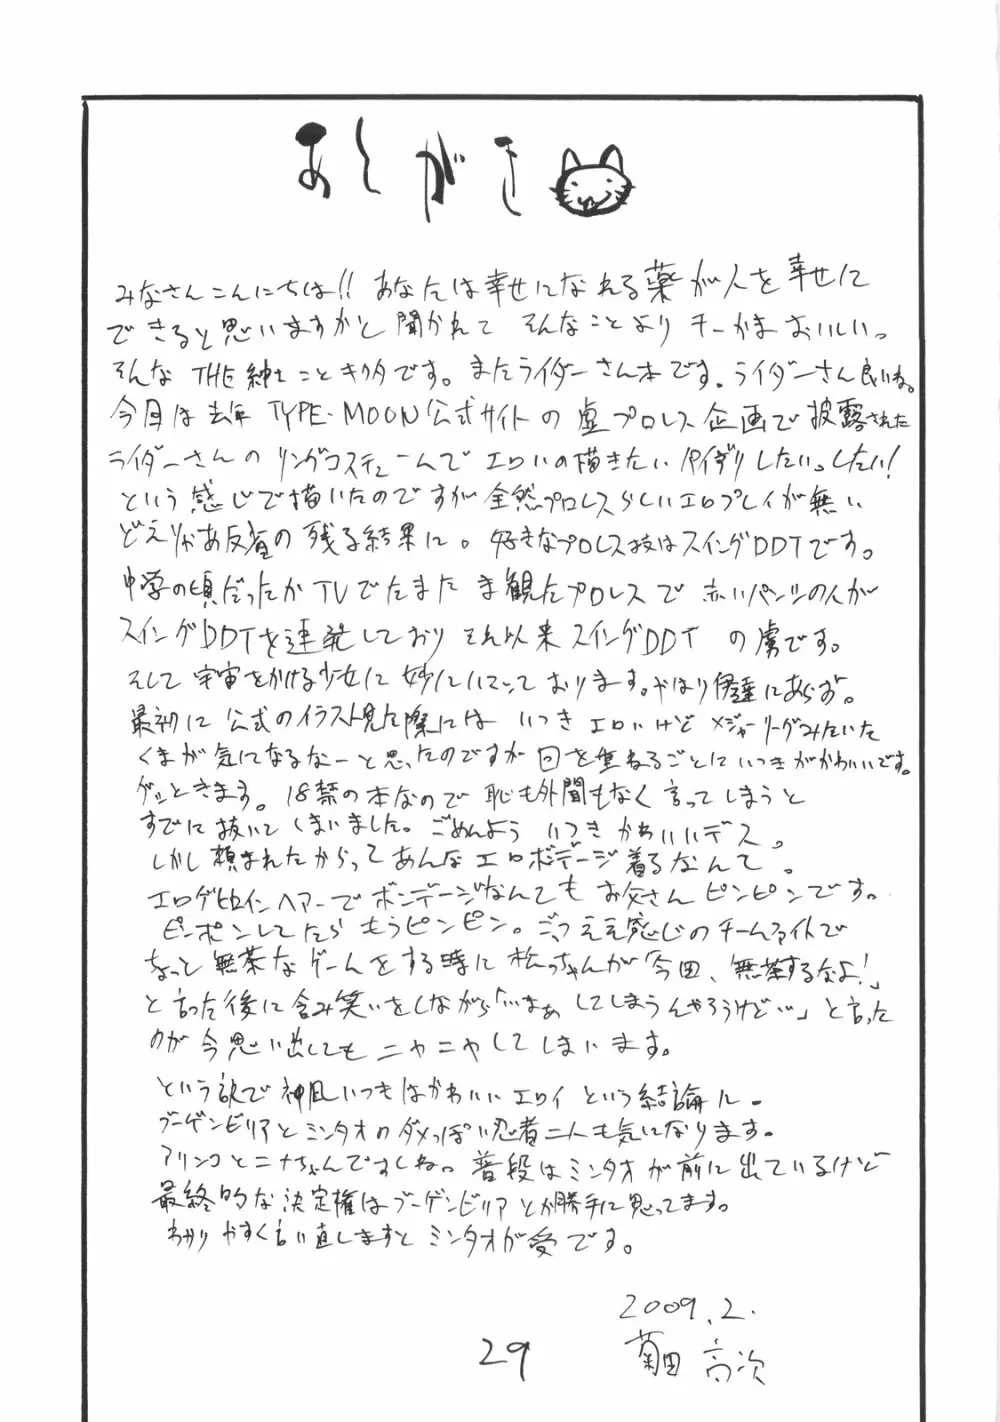 あとがき
みなさんこんにちは!! あなたは幸せになれる薬が人を幸せに
できると思いますかと聞かれて そんなことより チーかまおいしいっ
そんな THE紳士ことキクタです。またライダーさん本です。ライダーさん良いね。
今回は去年 TYPE-MOON公式サイトの虚プロレス企画で披露された
ライダーさんのリングコスチュームで エロいの描きたい パイズリしたい。したい!
という感じで描いたのですが全然プロレスらしいエロプレイが無い
どえりゃあ反省の残る結果に。好きなプロレス技はスイングDDTです。
中学の頃だったか TVでたまたま観たプロレスで 赤いパンツの人が
スイングDDTを連発しており それ以来スイングDDTの虜です。
そして宇宙をかける少女に妙にハマっております。やはり伊達にあらず。
最初に公式のイラスト見た際には いつきエロいけど メジャーリーグみたいた
くまが気になるなーと思ったのですが回を重ねるごとにいつきがかわいいです。
グッときます。18禁の本なので恥も外聞もなく言ってしまうと
すでに抜いてしまいました。ごめんよう いつき かわいいデス。
しかし頼まれたからってあんなエロボンデージ着るなんて。
エロゲヒロインヘアーでボンデージなんてもうお父さんビンビンです。
ピンポンしてたらもうピンピン。ごっつええ感じのチームファイトで
ちょっと無茶なゲームをする時に松っちゃんが「今回、無茶するなよ!」
と言った後に含み笑いをしながら「…まぁ してしまうんやろうけど…」と言った
のが今思い出してもニヤニヤしてしまいます。
という訳で神凪いつきはかわいいエロイという結論に。
ブーゲンビリアとミンタオのダメっぽい忍者二人も気になります。
アリンコとニナちゃんですしね。普段はミンタオが前に出ているけど
最終的な決定権はブーゲンビリアとか勝手に思ってます。
わかりやすく言い直しますとミンタオが受です。
2009.2.
菊田高次
29